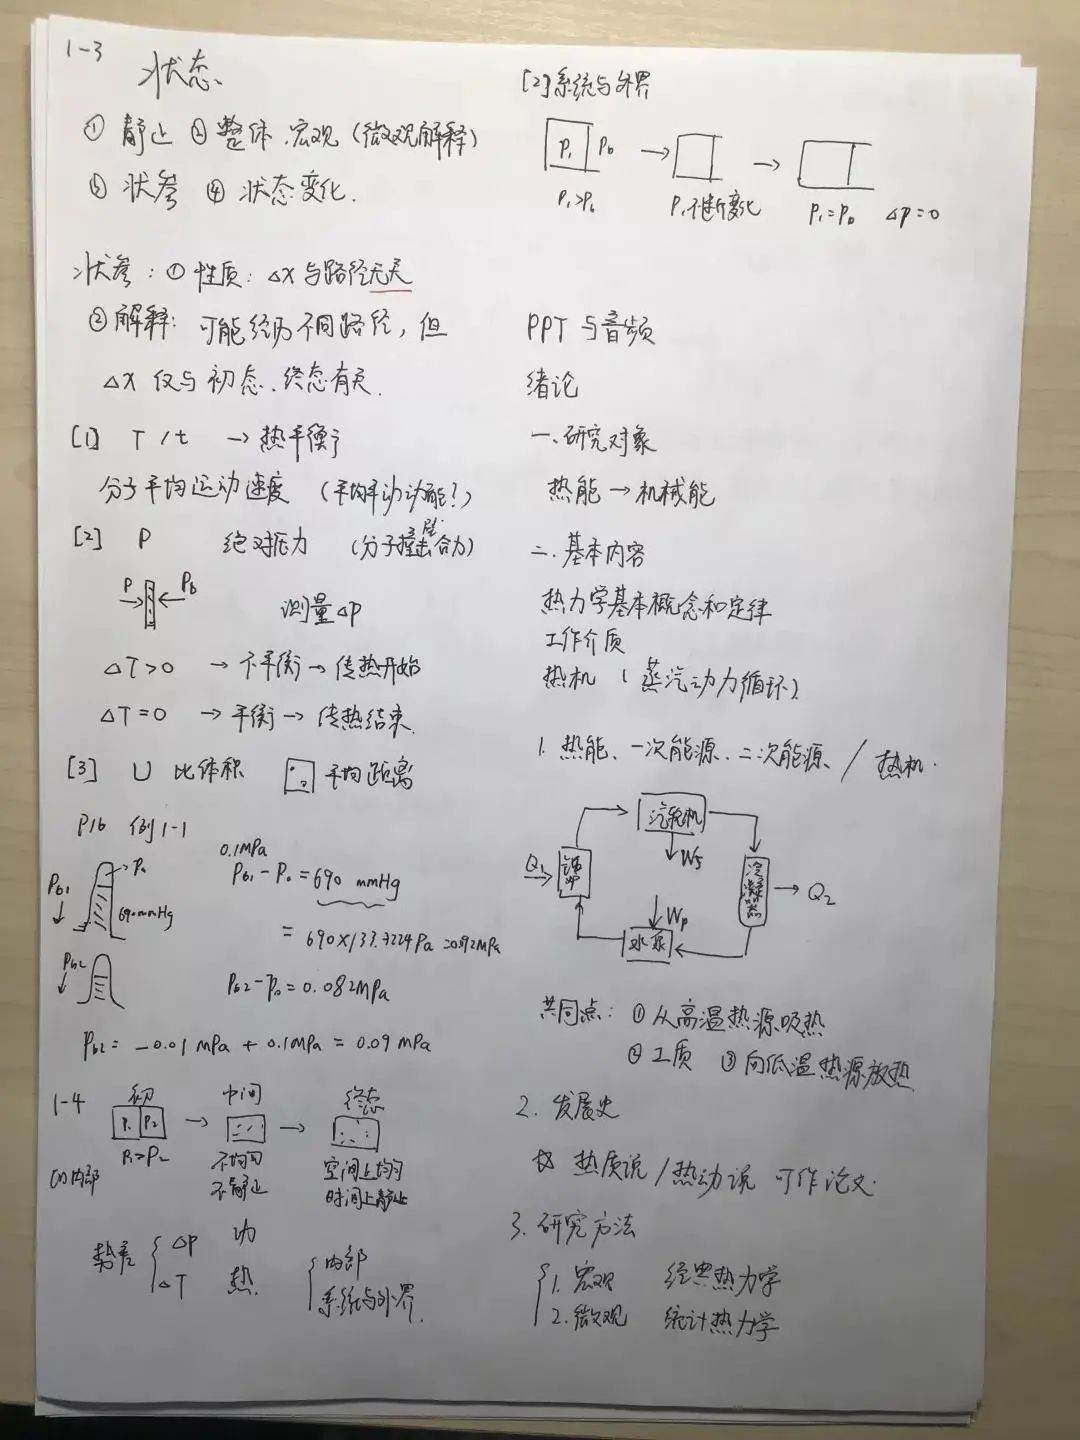 1-3
状态
① 静止 ② 整体、宏观 (微观解释)
③ 状参 ④ 状态变化.
状参: ① 性质: Δx与路径无关
② 解释: 可能经历不同路径, 但
Δx 仅与初态、终态有关.
[1] T/t → 热平衡
分子平均运动速度 (平均平动动能?)
[2] P 绝对压力 (分子撞击合力)
P Pb
测量Δp
ΔT>0 → 不平衡 → 传热开始
ΔT=0 → 平衡 → 传热结束.
[3] U 比体积 平均距离
P16 例1-1
Pb1 P0 690mmHg
0.1MPa
Pb1-P0=690 mmHg
=690×133.3224Pa=0.092MPa
Pb2
Pb2-P0=0.082MPa
Pb2= -0.01MPa+0.1MPa=0.09MPa
1-4 初 中间 终态
P1 P2 → →
P1>P2 不均匀 空间上均匀
(1)内部 不静止 时间上静止
势差 { Δp 功
ΔT 热.
{ 内部
系统与外界.
[2]系统与外界
P1 Pb → →
P1>Pb P1不断变化 P1=Pb Δp=0
PPT与音频
绪论
一、研究对象
热能→机械能
二、基本内容
热力学基本概念和定律
工作介质
热机 (蒸汽动力循环)
1. 热能、一次能源、二次能源、/ 热机.
汽轮机
Q1→ 锅炉 Ws 冷凝器 →Q2
Wp
水泵
共同点: ①从高温热源吸热
②工质 ③向低温热源放热
2. 发展史
热质说/热动说 可作论文.
3. 研究方法
{ 1. 宏观 经典热力学
2. 微观 统计热力学